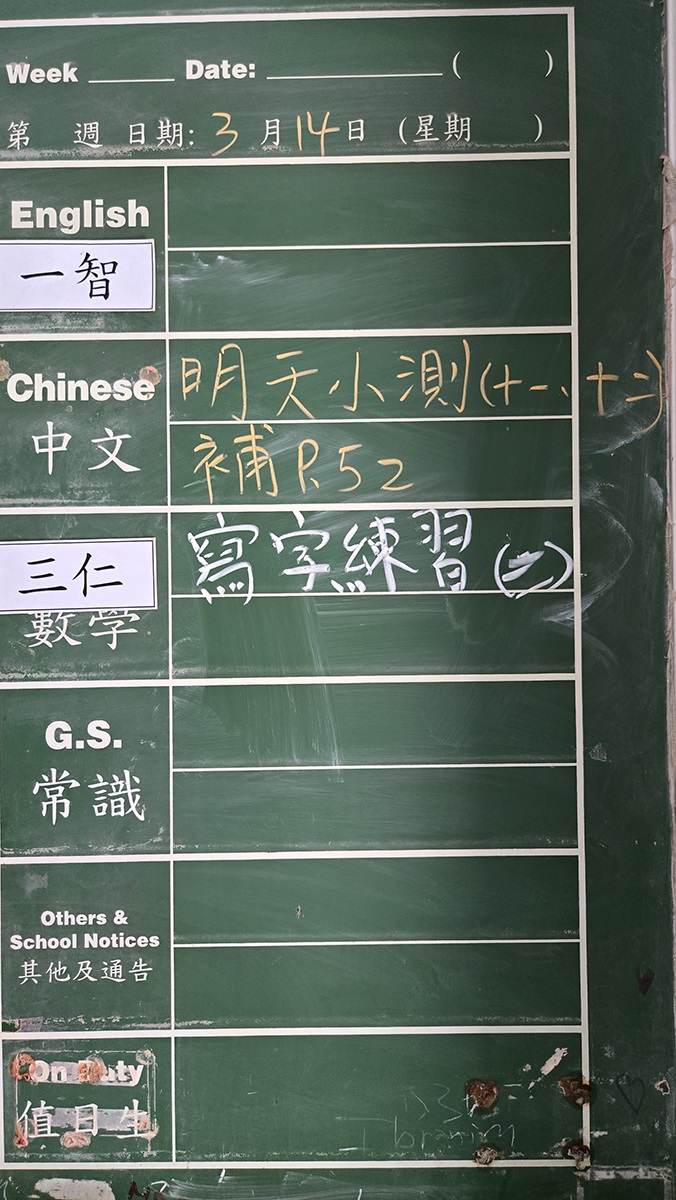 Week ______ Date: ____________ (      )
第 週 日期: 3 月 14 日 (星期      )
English
一智
Chinese 明天小測(十一、十二)
中文 補 P.52
三仁 寫字練習(二)
數學
G.S.
常識
Others &
School Notices
其他及通告
On Duty
值日生